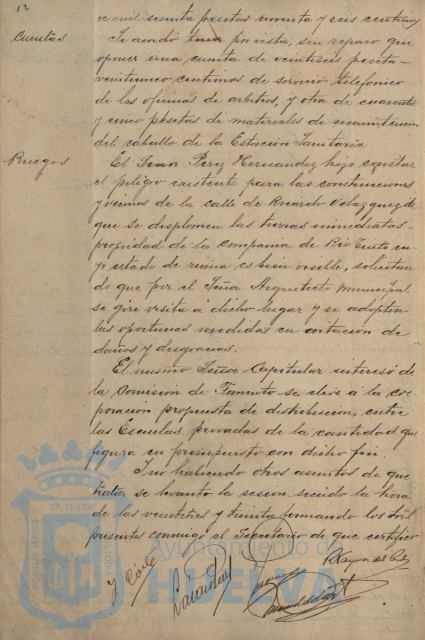 12
ve mil sesenta pesetas noventa y seis centimos
Cuentas
Se acordó por vista, sin reparo que
oponer una cuenta de veintiseis pesetas
veinticinco centimos de servicio telefonico
de las oficinas de arbitrios, y otra de cuarenta
y cinco pesetas de materiales de manutencion
del caballo de la Estacion Sanitaria
Ruegos
El Señor Perez Hernandez hizo constar
el peligro existente para las construcciones
y vecinos de la calle de Ricardo Velazquez de
que se desplomen las tierras inmediatas
propiedad de la Compañia de Rio Tinto cu-
yo estado de ruina es bien visible, solicitan-
do que por el Señor Arquitecto municipal
se gire visita á dicho lugar y se adopten
las oportunas medidas en evitacion de
daños y desgracias.
El mismo Señor Capitular interesó de
la Comision de Fomento se eleve á la cor-
poracion propuesta de distribucion, entre
las Escuelas privadas de la cantidad que
figura en presupuesto con dicho fin.
Y no habiendo otros asuntos de que
tratar se levantó la sesion siendo la hora
de las veintitres y treinta firmando los Sres
presentes conmigo el Secretario de que certifico
Ayuntamiento de
HUELVA